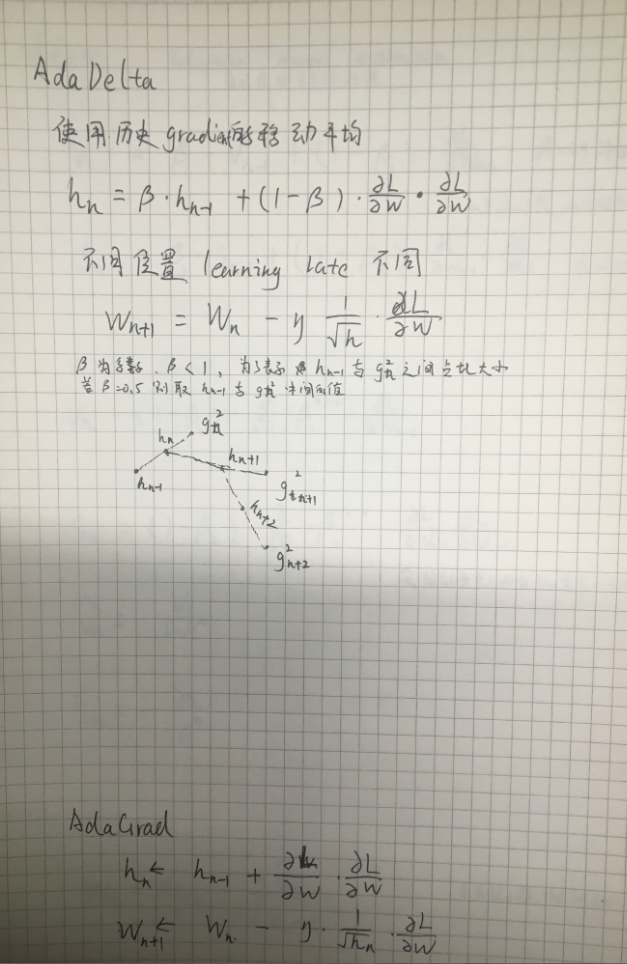 AdaDelta
使用历史gradient的移动平均
hₙ = β · hₙ₋₁ + (1-β) · ∂L/∂W · ∂L/∂W
不同位置 learning late 不同
Wₙ₊₁ = Wₙ - η 1/√h · ∂L/∂W
β 为系数. β < 1, 为了表示 hₙ₋₁ 与 gₙ² 之间占比大小
若 β=0.5 则取 hₙ₋₁ 与 gₙ² 中间的值
gₙ²
hₙ
hₙ₊₁
hₙ₋₁
g²ₙ₊₁
hₙ₊₂
g²ₙ₊₂
AdaGrad
hₙ ← hₙ₋₁ + ∂L/∂W · ∂L/∂W
Wₙ₊₁ ← Wₙ - η · 1/√hₙ · ∂L/∂W